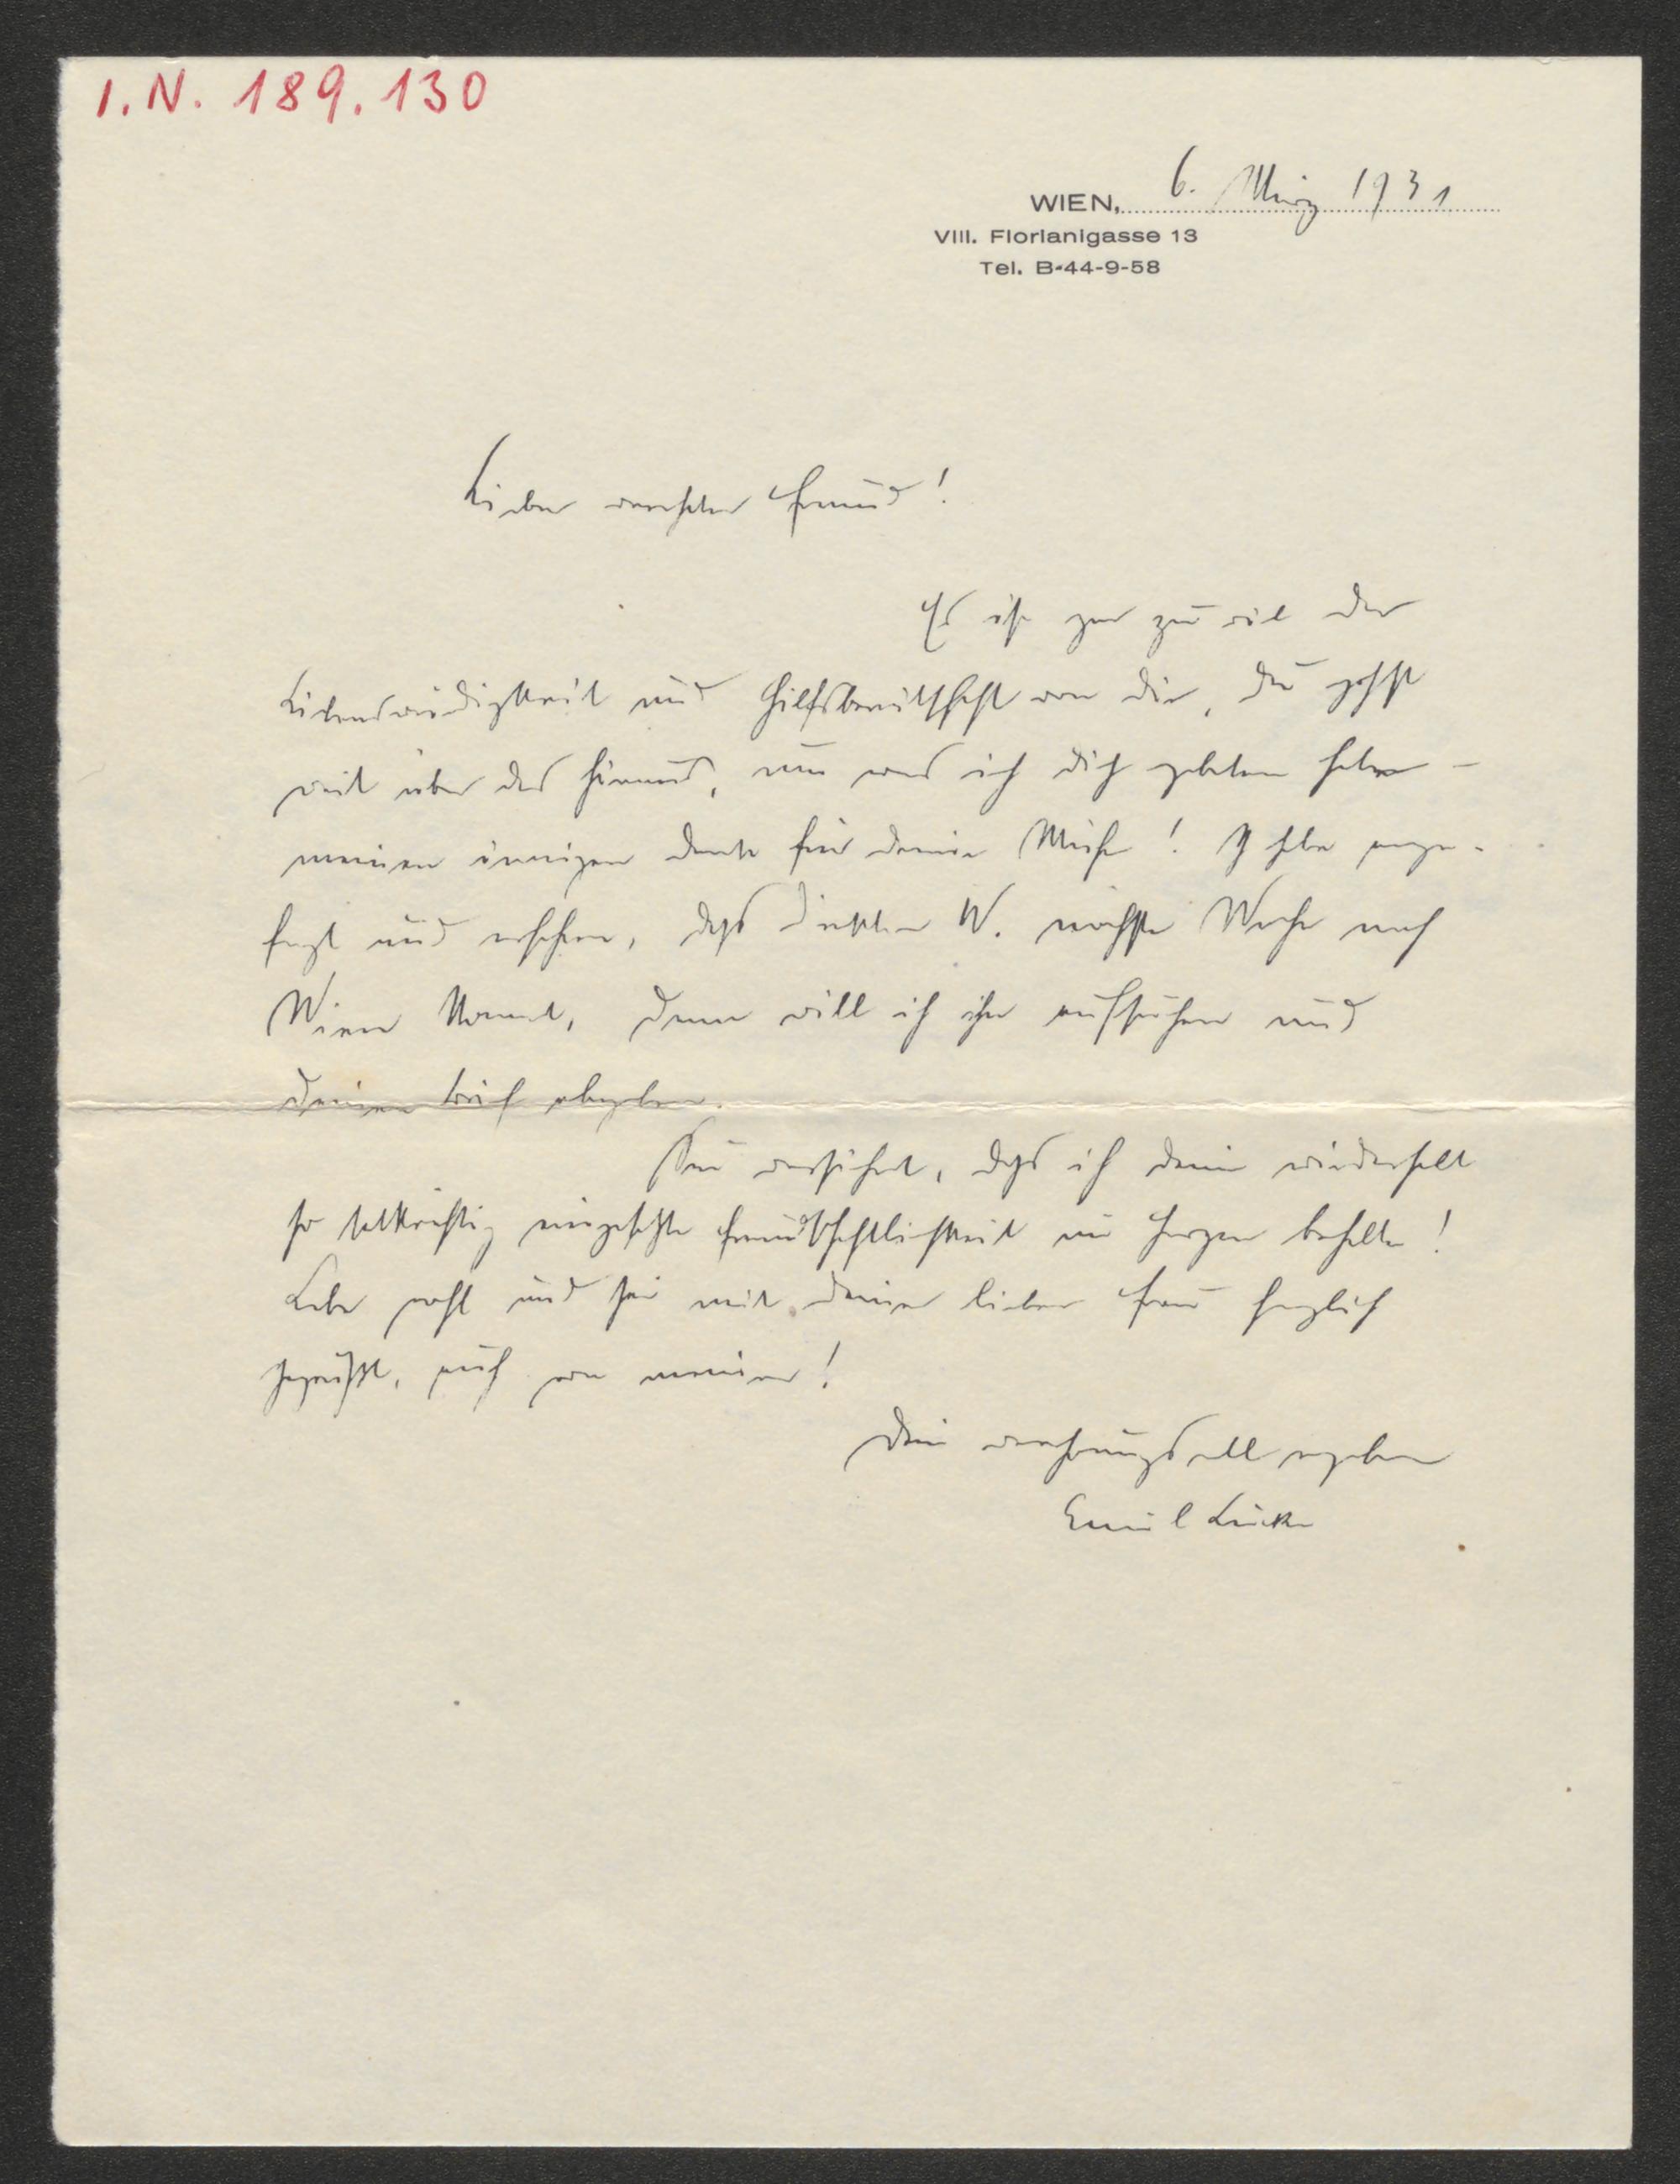 I.N. 189.130
WIEN, 6. März 1931
VIII. Florianigasse 13
Tel. B-44-9-58
Lieber verehrter Freund!
Es ist gar zu viel der
Liebenswürdigkeit und Hilfsbereitschaft von dir, du gehst
weit über das hinaus, um was ich dich gebeten habe –
meinen innigen Dank für deine Mühe! Ich habe ange-
fragt und erfahren, dass Direktor W. nächste Woche nach
Wien kommt, dann will ich ihn aufsuchen und
deinen Brief abgeben.
Sei versichert, dass ich deine wiederholt
so tatkräftig eingesetzte Freundschaftlichkeit im Herzen behalte!
Lebe wohl und sei mit deiner lieben Frau herzlich
gegrüßt, auch von meiner!
Dein verehrungsvoll ergebener
Emil Lucka